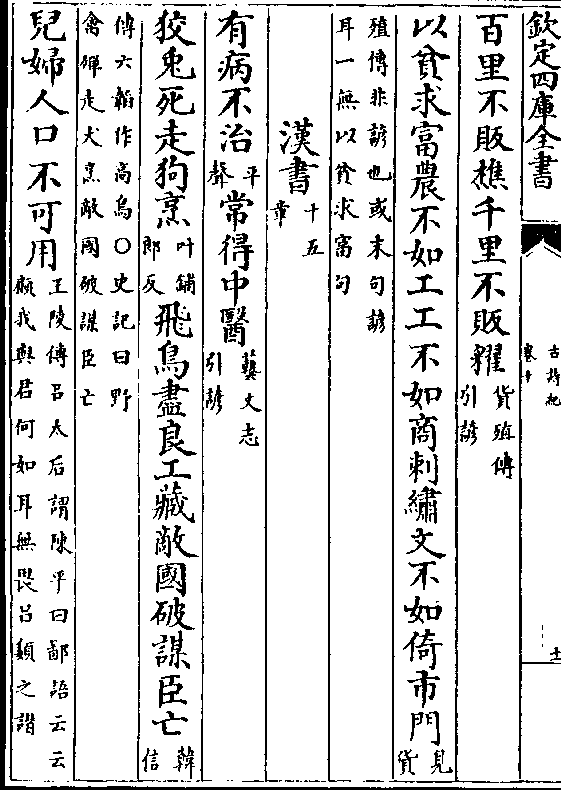 欽定四庫全書
古詩紀
卷十
十
百里不販樵千里不販糴貨殖傳引諺
以貧求富農不如工工不如商刺繡文不如倚市門見貨
殖傳非諺也或末句諺耳一無以貧求富句
漢書十五章
有病不治平聲常得中醫藝文志引諺
狡兔死走狗烹叶鋪郎反飛鳥盡良工藏敵國破謀臣亡韓信
傳六韜作高鳥○史記曰野禽殫走犬烹敵國破謀臣亡
兒婦人口不可用王陵傳吕太后謂陳平曰鄙語云云顧我與君何如耳無畏吕嬃之譖